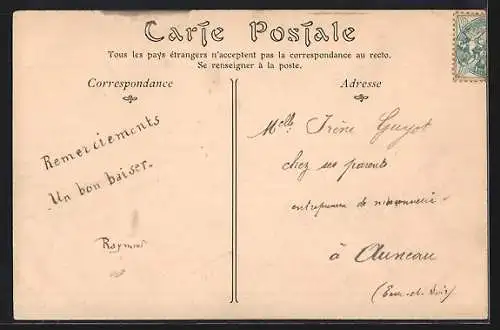 Carte Postale
Tous les pays étrangers n'acceptent pas la correspondance au recto.
Se renseigner à la poste.
Correspondance
Adresse
Remerciements
Un bon baiser.
Raymond
Melle Irène Guyot
chez ses parents
entrepreneur de maçonnerie
à Auneau
(Eure-et-Loir)